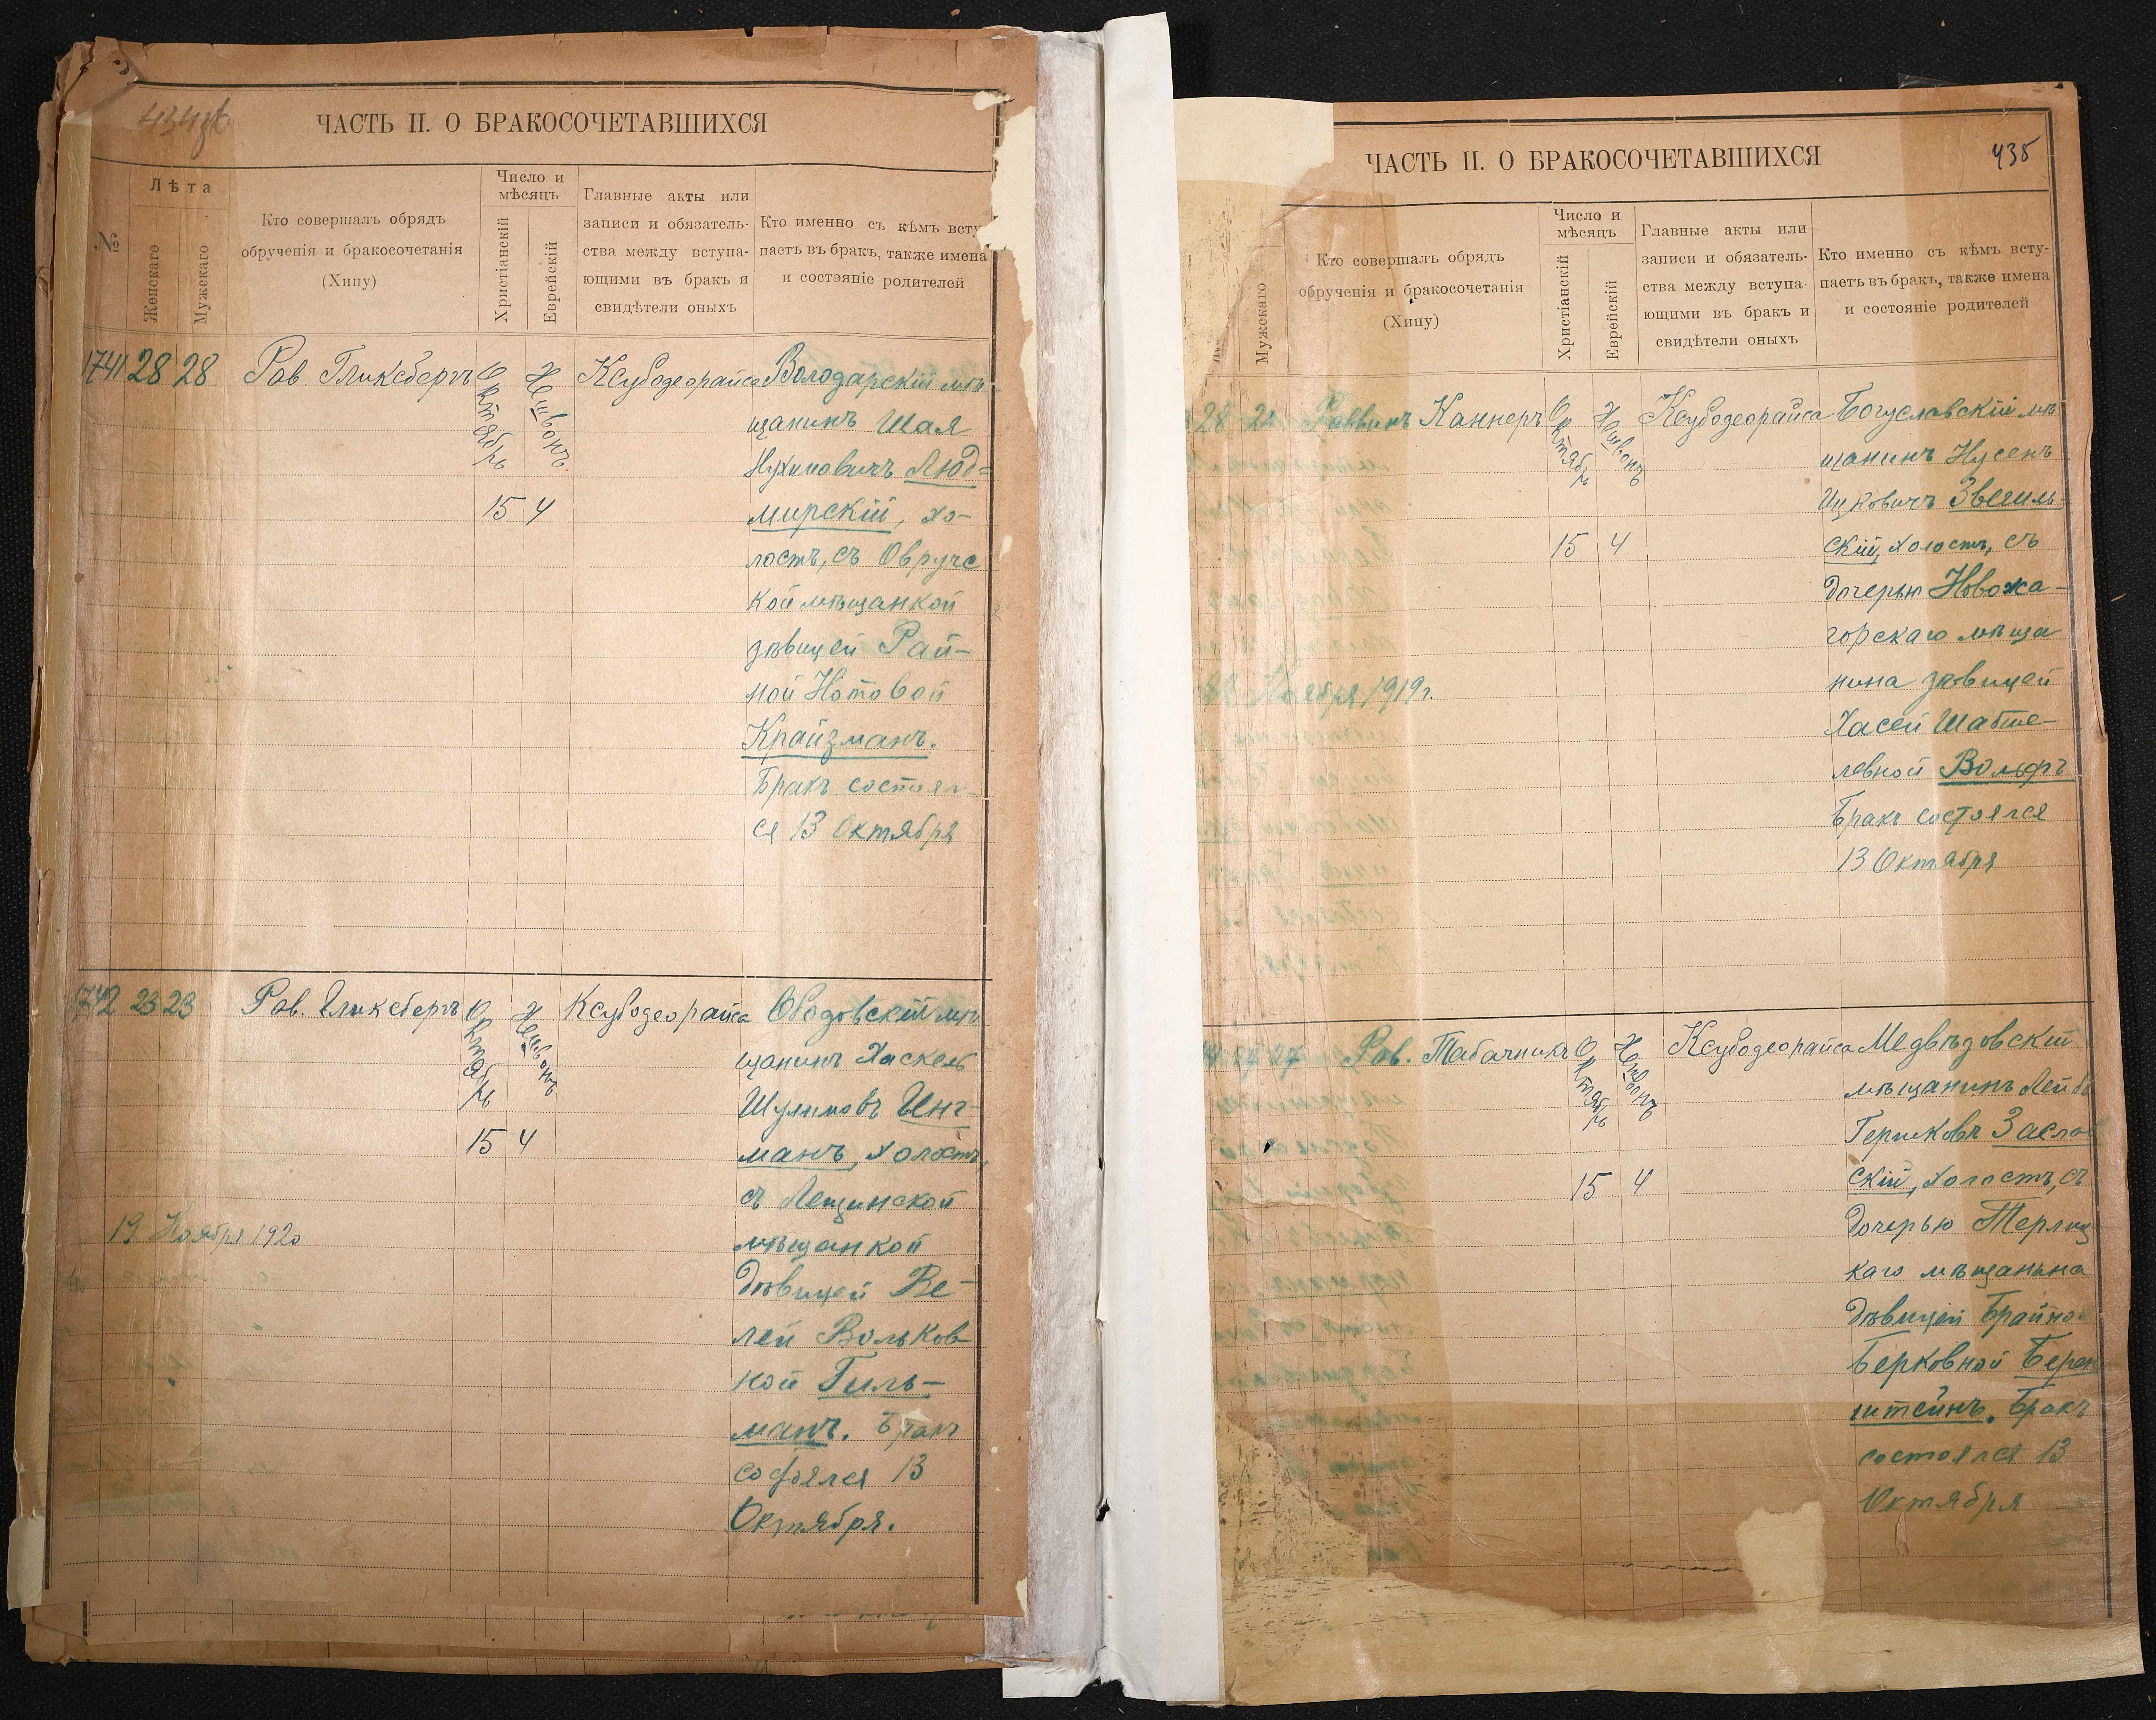 ЧАСТЬ II. О БРАКОСОЧЕТАВШИХСЯ
№
Лѣта
Женскаго
Мужскаго
Кто совершалъ обрядъ
обрученія и бракосочетанія
(Хипу)
Число и
мѣсяцъ
Христіанскій
Еврейскій
Главные акты или
записи и обязатель-
ства между вступа-
ющими въ бракъ и
свидѣтели оныхъ
Кто именно съ кѣмъ всту
паетъ въ бракъ, также имена
и состояніе родителей
1741 28 28
Рав Гликсбергъ
Октябрь
Хешвонъ.
15 4
Ксубодеорайса
Володарскій мѣ
щанинъ Шая
Нухимовичъ Люд=
мирскій, хо-
лостъ, съ Овручс
кой мѣщанкой
дѣвицей Рай-
ной Нотовой
Крайзманъ.
Бракъ состоял
ся 13 Октября
1742 23 23
Рав. Гликсбергъ
Октябрь
Хешвонъ
15 4
Ксубодеорайса
19 Ноября 1920
Ободовскій мѣ
щанинъ Хаскель
Шулимовъ Инг-
манъ, холостъ,
съ Лещинской
мѣщанкой
дѣвицей Ве-
лей Вольков-
ной Гиль-
манъ. Бракъ
состоялся 13
Октября.
ЧАСТЬ II. О БРАКОСОЧЕТАВШИХСЯ
435
Мужскаго
Кто совершалъ обрядъ
обрученія и бракосочетанія
(Хипу)
Число и
мѣсяцъ
Христіанскій
Еврейскій
Главные акты или
записи и обязатель-
ства между вступа-
ющими въ бракъ и
свидѣтели оныхъ
Кто именно съ кѣмъ всту-
паетъ въ бракъ, также имена
и состояніе родителей
28
Раввинъ Каннеръ
Октябрь
Хешвонъ
15 4
Ксубодеорайса
Ноября 1919 г.
Богуславскій мѣ
щанинъ Нусенъ
Ицковичъ Звегиль-
скій, холостъ, съ
дочерью Новожа-
горскаго мѣща
нина дѣвицей
Хасей Шабше-
левной Вольфъ
Бракъ состоялся
13 Октября
27
Рав. Табачникъ
Октябрь
Хешвонъ
15 4
Ксубодеорайса
Медвѣдовскій
мѣщанинъ Лейба
Гершковъ Заслав
скій, холостъ, съ
дочерью Терлиц
каго мѣщанина
дѣвицей Брайной
Берковной Берен
штейнъ. Бракъ
состоялся 13
Октября